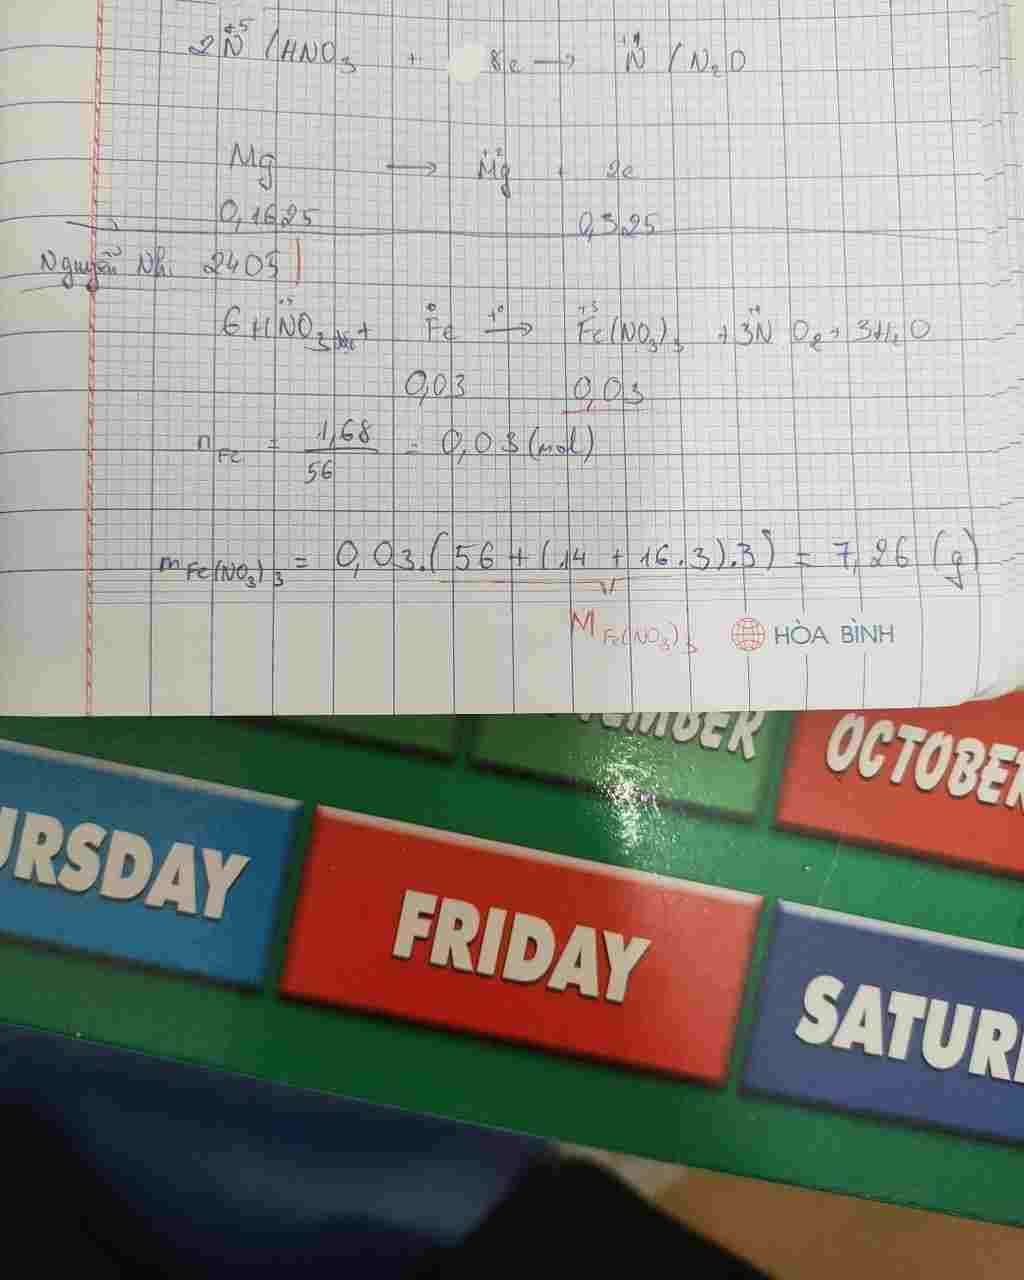 2N⁺⁵ /HNO₃ + 8e → N⁺¹ / N₂O
Mg → Mg⁺² + 2e
0,1625 0,325
Nguyễn Nhi 2403
6HN⁺⁵O₃ + Fe⁰ →(t°) Fe⁺³(NO₃)₃ + 3N⁺⁴O₂ + 3H₂O
0,03 0,03
n Fe = 1,68/56 = 0,03 (mol)
m Fe(NO₃)₃ = 0,03.(56 + (14 + 16.3).3) = 7,26 (g)
M Fe(NO₃)₃
HÒA BÌNH
EMBER OCTOBER
URSDAY FRIDAY SATUR